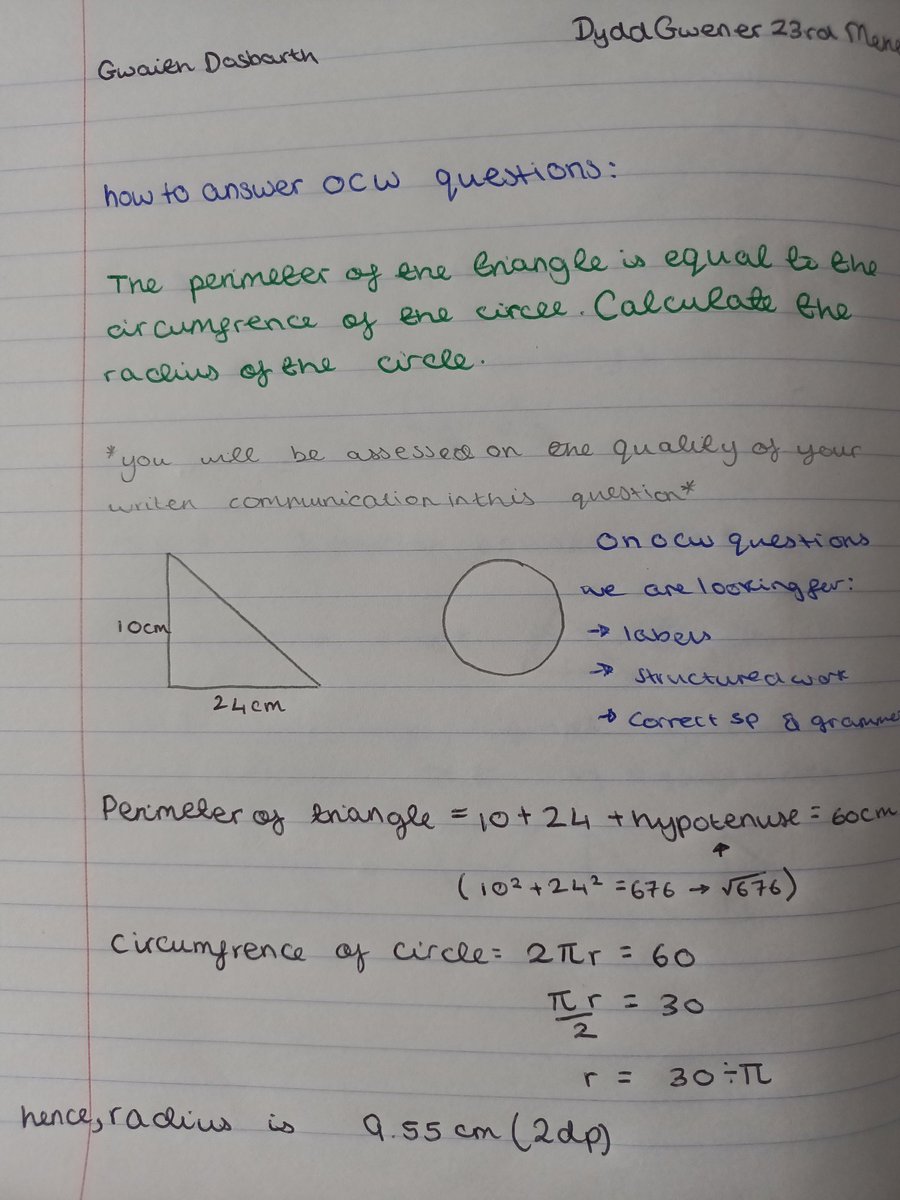 Dydd Gwener 23rd
Gwaien Dosbarth
how to answer OCW questions:
The perimeter of the triangle is equal to the
circumfrence of the circle. Calculate the
radius of the circle.
*you will be assessed on the quality of your
writen communication in this question*
On OCW questions
we are looking for:
→ labels
→ structured work
→ correct sp & gramme
10cm
24cm
Perimeter of triangle = 10 + 24 + hypotenuse = 60cm
↑
(10² + 24² = 676 → √676)
circumfrence of circle = 2πr = 60
πr/2 = 30
r = 30 ÷ π
hence, radius is 9.55 cm (2dp)